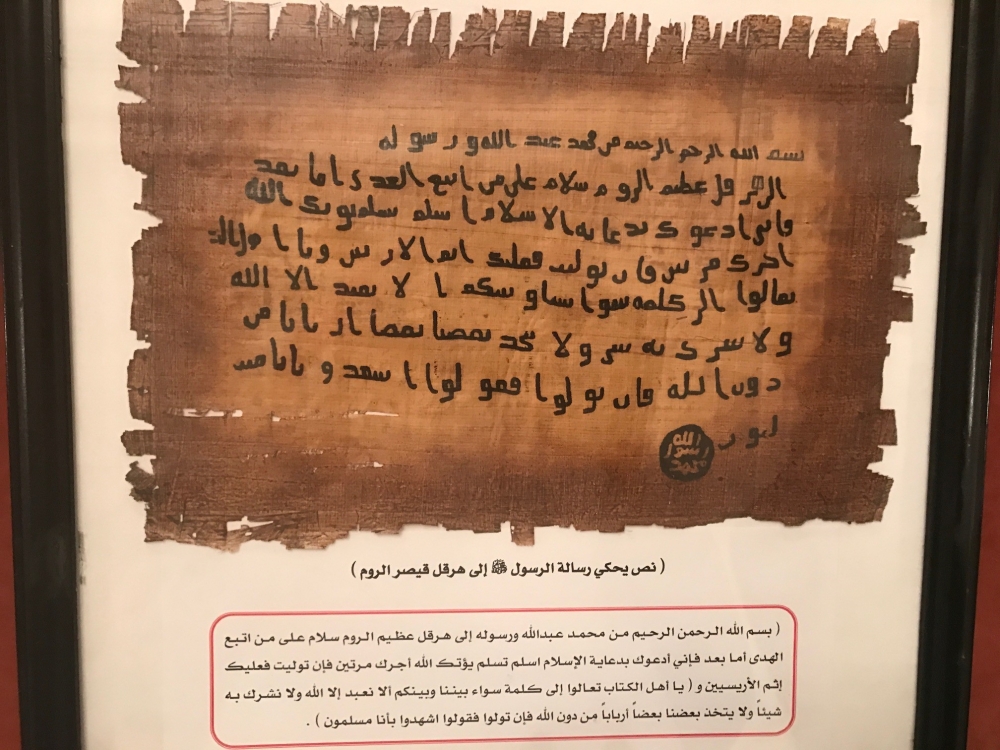 بسم الله الرحمن الرحيم من محمد عبد الله ورسوله
الى هرقل عظيم الروم سلام على من اتبع الهدى اما بعد
فانى ادعوك بدعاية الاسلام اسلم تسلم يوتك الله
اجرك مرتين فان توليت فعليك اثم الاريسين ويا اهل الكتاب
تعالوا الى كلمة سوا بيننا وبينكم الا نعبد الا الله
ولا نشرك به شيا ولا يتخذ بعضنا بعضا اربابا من
دون الله فان تولوا فقولوا اشهدوا بانا مسلمون
الله
رسول
محمد
( نص يحكي رسالة الرسول ﷺ إلى هرقل قيصر الروم )
( بسم الله الرحمن الرحيم من محمد عبدالله ورسوله إلى هرقل عظيم الروم سلام على من اتبع
الهدى أما بعد فإني أدعوك بدعاية الإسلام اسلم تسلم يؤتك الله أجرك مرتين فإن توليت فعليك
إثم الأريسيين و ( يا أهل الكتاب تعالوا إلى كلمة سواء بيننا وبينكم ألا نعبد إلا الله ولا نشرك به
شيئاً ولا يتخذ بعضنا بعضاً أرباباً من دون الله فإن تولوا فقولوا اشهدوا بأنا مسلمون ) .